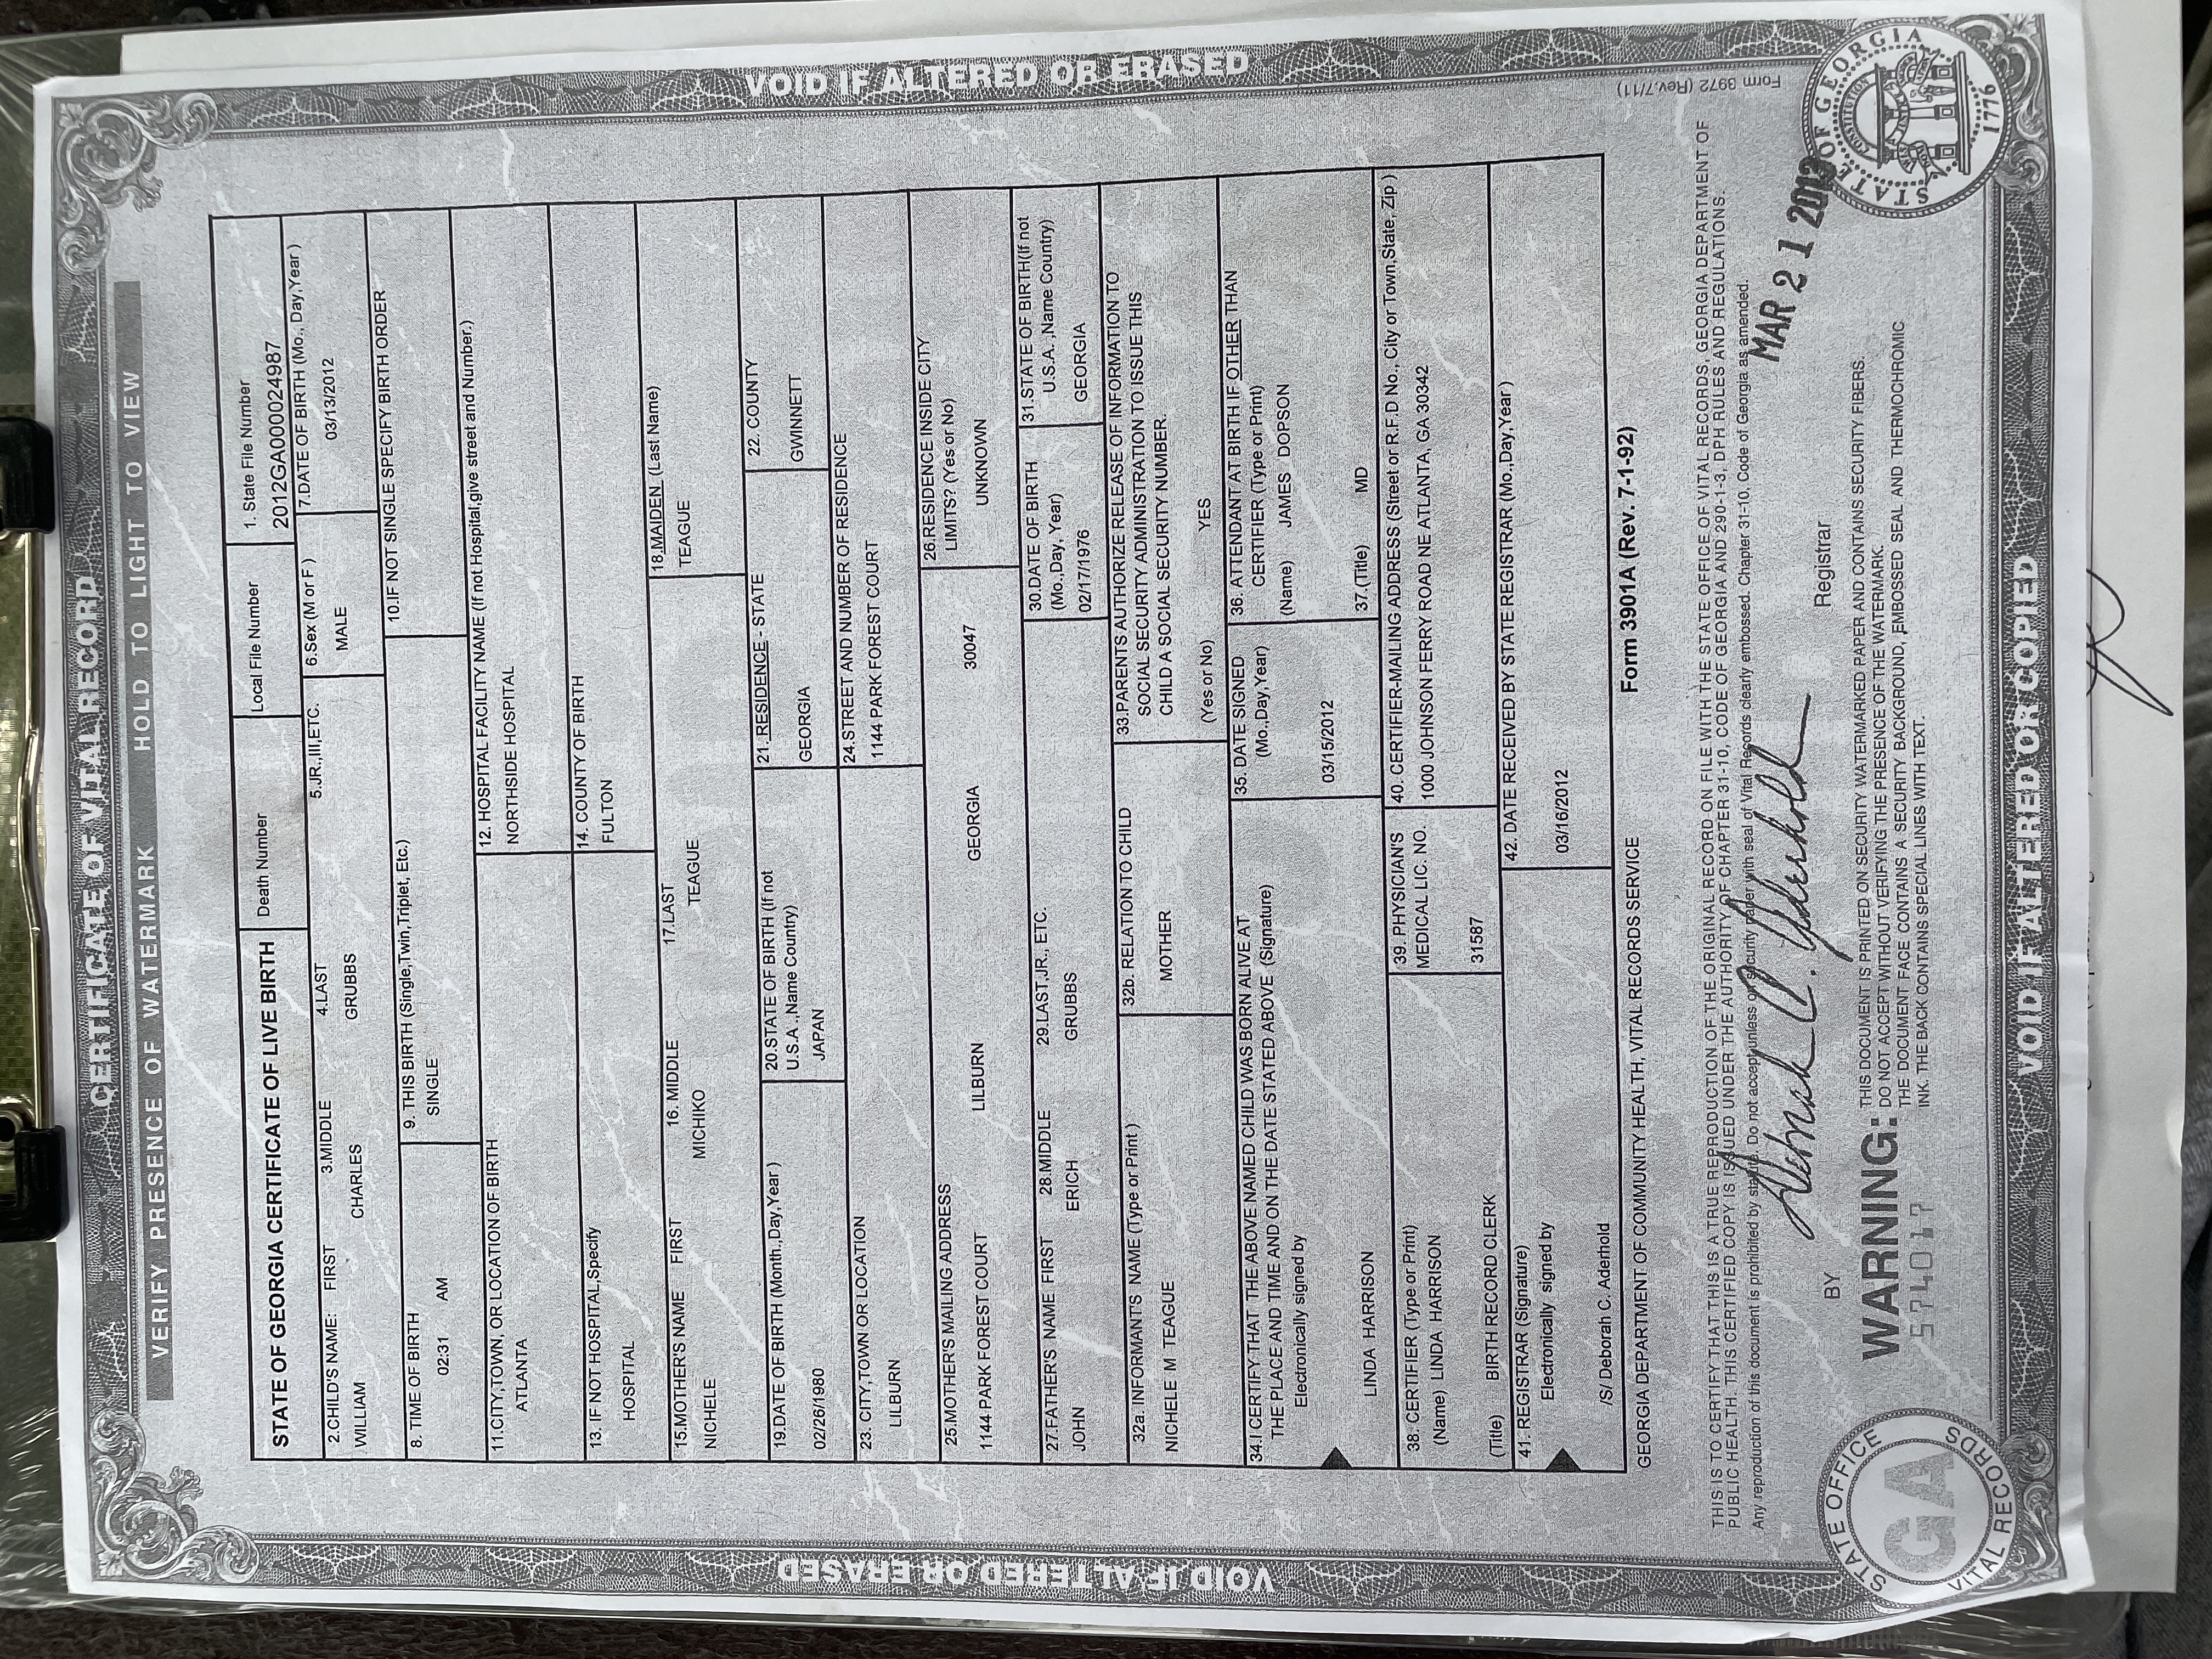 CERTIFICATE OF VITAL RECORD
VERIFY PRESENCE OF WATERMARK HOLD TO LIGHT TO VIEW
STATE OF GEORGIA CERTIFICATE OF LIVE BIRTH
Death Number
Local File Number
1. State File Number
2012GA000024987
2.CHILD'S NAME: FIRST 3.MIDDLE 4.LAST 5.JR.,III,ETC.
WILLIAM CHARLES GRUBBS
6.Sex (M or F)
MALE
7.DATE OF BIRTH (Mo., Day,Year )
03/13/2012
8. TIME OF BIRTH
02:31 AM
9. THIS BIRTH (Single,Twin,Triplet, Etc.)
SINGLE
10.IF NOT SINGLE SPECIFY BIRTH ORDER
11.CITY,TOWN, OR LOCATION OF BIRTH
ATLANTA
12. HOSPITAL FACILITY NAME (If not Hospital,give street and Number.)
NORTHSIDE HOSPITAL
13. IF NOT HOSPITAL,Specify
HOSPITAL
14. COUNTY OF BIRTH
FULTON
15.MOTHER'S NAME FIRST 16. MIDDLE 17.LAST
NICHELE MICHIKO TEAGUE
18.MAIDEN (Last Name)
TEAGUE
19.DATE OF BIRTH (Month.,Day,Year )
02/26/1980
20.STATE OF BIRTH (If not
U.S.A.,Name Country)
JAPAN
21. RESIDENCE - STATE
GEORGIA
22. COUNTY
GWINNETT
23. CITY,TOWN OR LOCATION
LILBURN
24.STREET AND NUMBER OF RESIDENCE
1144 PARK FOREST COURT
25.MOTHER'S MAILING ADDRESS
1144 PARK FOREST COURT LILBURN GEORGIA 30047
26.RESIDENCE INSIDE CITY
LIMITS? (Yes or No)
UNKNOWN
27.FATHER'S NAME FIRST 28.MIDDLE 29.LAST,JR., ETC.
JOHN ERICH GRUBBS
30.DATE OF BIRTH
(Mo.,Day, Year)
02/17/1976
31.STATE OF BIRTH(If not
U.S.A. ,Name Country)
GEORGIA
32a. INFORMANT'S NAME (Type or Print )
NICHELE M TEAGUE
32b. RELATION TO CHILD
MOTHER
33.PARENTS AUTHORIZE RELEASE OF INFORMATION TO
SOCIAL SECURITY ADMINISTRATION TO ISSUE THIS
CHILD A SOCIAL SECURITY NUMBER.
(Yes or No) YES
34.I CERTIFY THAT THE ABOVE NAMED CHILD WAS BORN ALIVE AT
THE PLACE AND TIME AND ON THE DATE STATED ABOVE (Signature)
Electronically signed by
LINDA HARRISON
35. DATE SIGNED
(Mo.,Day,Year)
03/15/2012
36. ATTENDANT AT BIRTH IF OTHER THAN
CERTIFIER (Type or Print)
(Name) JAMES DOPSON
37.(Title) MD
38. CERTIFIER (Type or Print)
(Name) LINDA HARRISON
(Title) BIRTH RECORD CLERK
39. PHYSICIAN'S
MEDICAL LIC. NO.
31587
40. CERTIFIER-MAILING ADDRESS (Street or R.F.D No., City or Town,State, Zip )
1000 JOHNSON FERRY ROAD NE ATLANTA, GA 30342
41. REGISTRAR (Signature)
Electronically signed by
/S/ Deborah C. Aderhold
42. DATE RECEIVED BY STATE REGISTRAR (Mo.,Day,Year )
03/16/2012
GEORGIA DEPARTMENT OF COMMUNITY HEALTH, VITAL RECORDS SERVICE Form 3901A (Rev. 7-1-92)
THIS IS TO CERTIFY THAT THIS IS A TRUE REPRODUCTION OF THE ORIGINAL RECORD ON FILE WITH THE STATE OFFICE OF VITAL RECORDS, GEORGIA DEPARTMENT OF
PUBLIC HEALTH. THIS CERTIFIED COPY IS ISSUED UNDER THE AUTHORITY OF CHAPTER 31-10, CODE OF GEORGIA AND 290-1-3, DPH RULES AND REGULATIONS.
Any reproduction of this document is prohibited by statute. Do not accept unless on security paper with seal of Vital Records clearly embossed. Chapter 31-10, Code of Georgia as amended.
MAR 21 2013
BY Deborah C. Aderhold Registrar
WARNING:
THIS DOCUMENT IS PRINTED ON SECURITY WATERMARKED PAPER AND CONTAINS SECURITY FIBERS.
DO NOT ACCEPT WITHOUT VERIFYING THE PRESENCE OF THE WATERMARK.
THE DOCUMENT FACE CONTAINS A SECURITY BACKGROUND, EMBOSSED SEAL AND THERMOCHROMIC
INK. THE BACK CONTAINS SPECIAL LINES WITH TEXT.
574017
STATE OFFICE
GA
VITAL RECORDS
STATE OF GEORGIA
CONSTITUTION
1776
Form 3972 (Rev.7/11)
VOID IF ALTERED OR ERASED
VOID IF ALTERED OR ERASED
VOID IF ALTERED OR COPIED